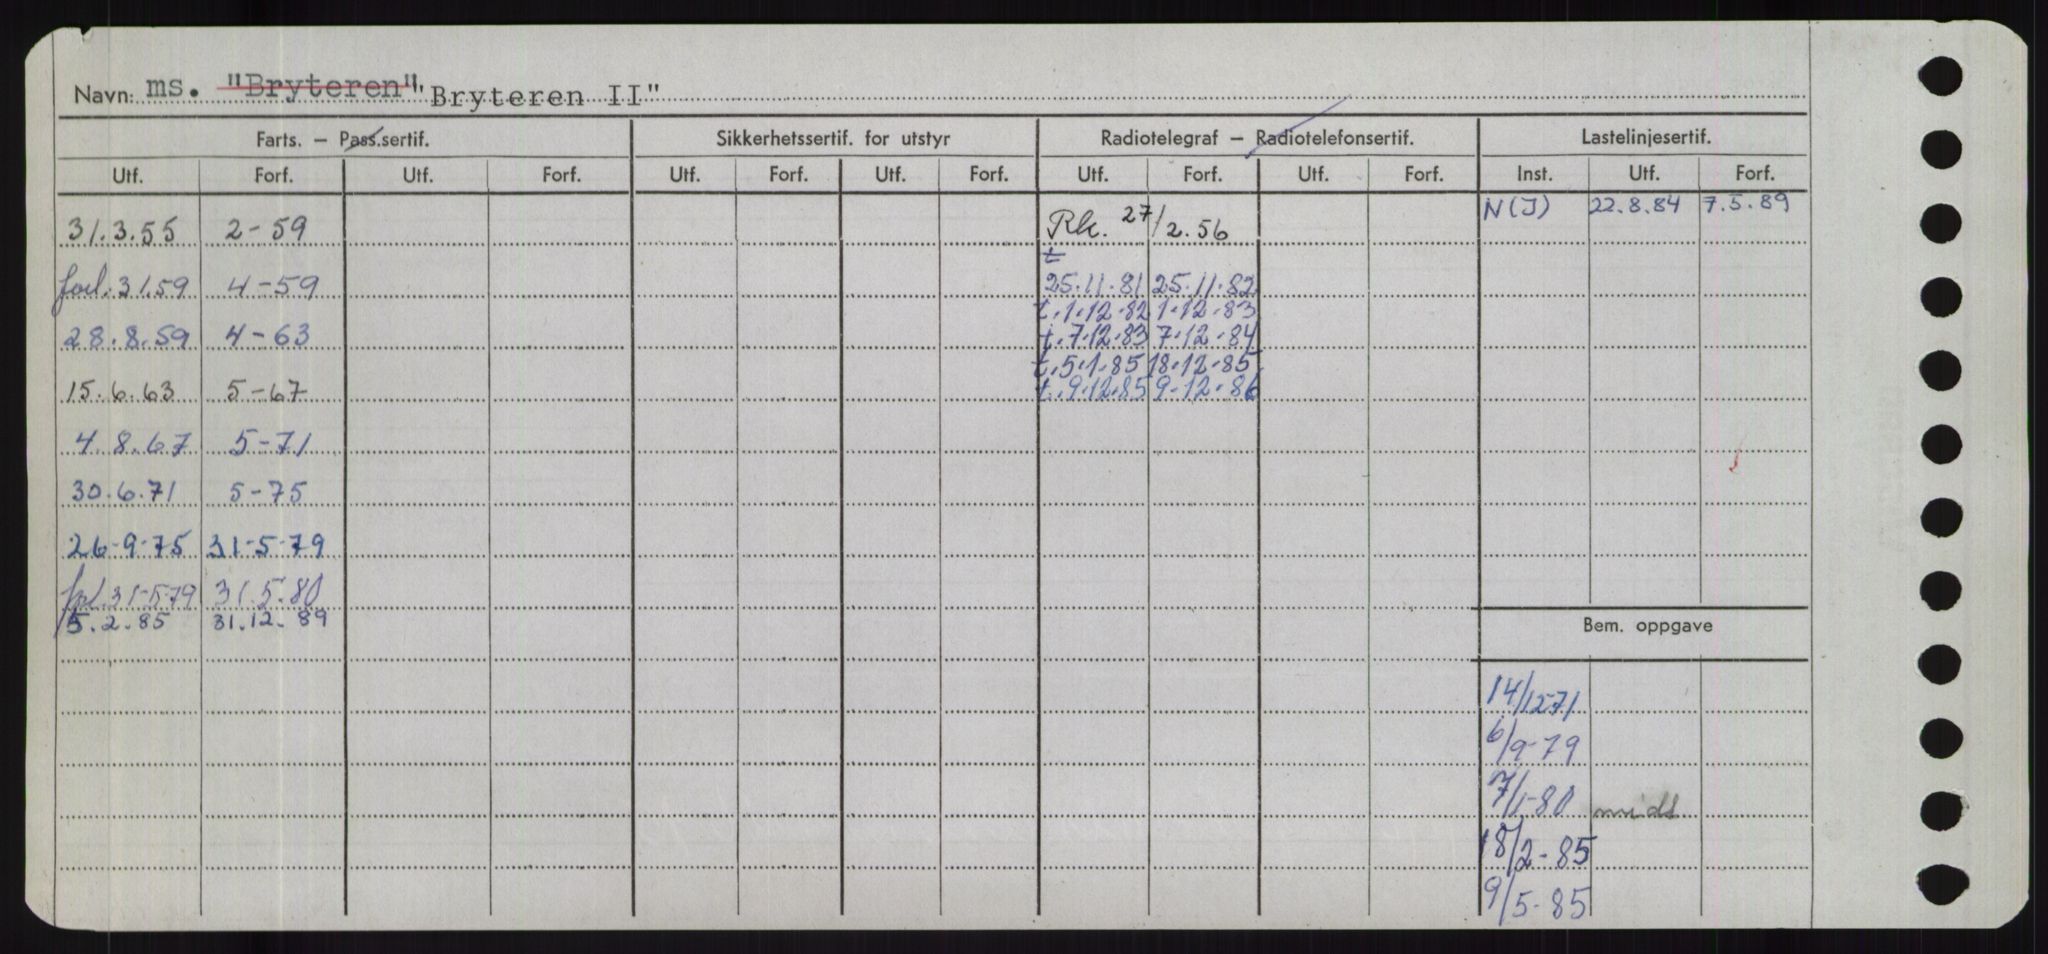 Navn: ms. "Bryteren" "Bryteren II"
Farts. — Pass.sertif. Sikkerhetssertif. for utstyr Radiotelegraf — Radiotelefonsertif. Lastelinjesertif.
Utf. Forf. Utf. Forf. Utf. Forf. Utf. Forf. Utf. Forf. Utf. Forf. Inst. Utf. Forf.
N(J) 22.8.84 7.5.89
31.3.55 2-59 Rk. 27/2.56
t
forl. 31.59 4-59 25.11.81 25.11.82
t.1.12.82 1.12.83
28.8.59 4-63 t.7.12.83 7.12.84
t.5.1.85 18.12.85
15.6.63 5-67 t.9.12.85 9.12.86
4.8.67 5-71
30.6.71 5-75
26-9-75 31-5-79
forl. 31-5-79 31.5.80
5.2.85 31.12.89
Bem. oppgave
14/12-71
6/9-79
7/1-80 midl
18/2-85
9/5-85